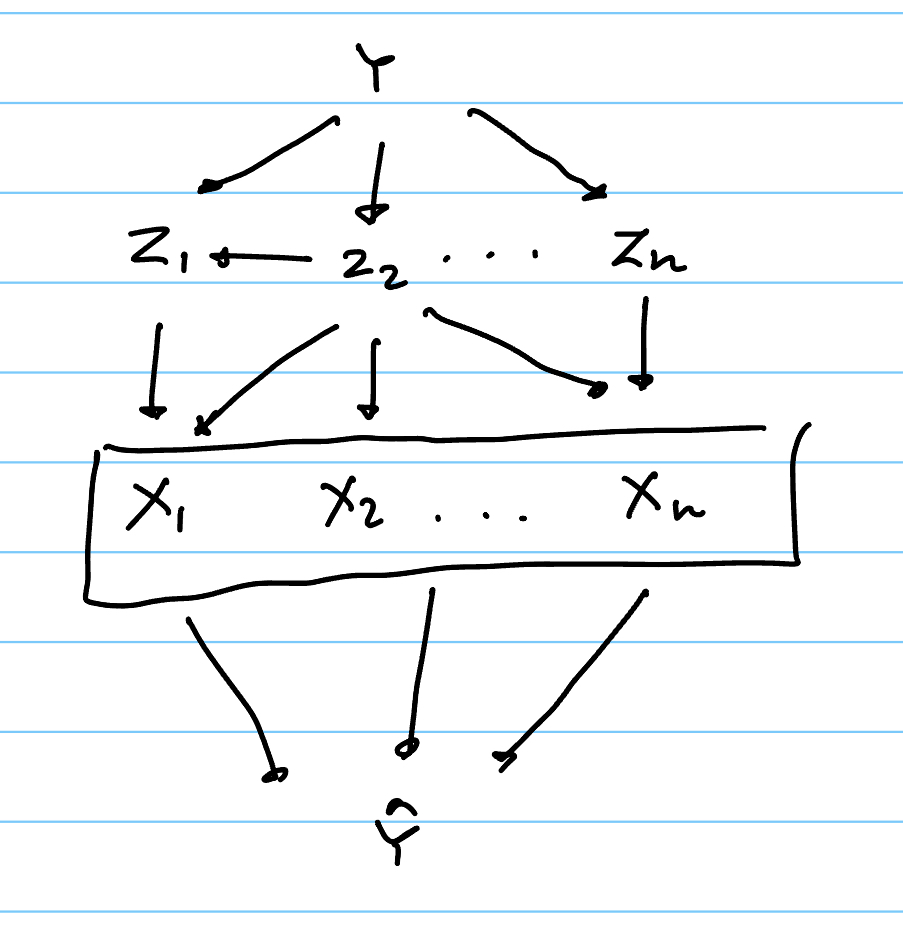 Y
Z₁ Z₂ . . . Zₙ
X₁ X₂ . . . Xₙ
Ŷ